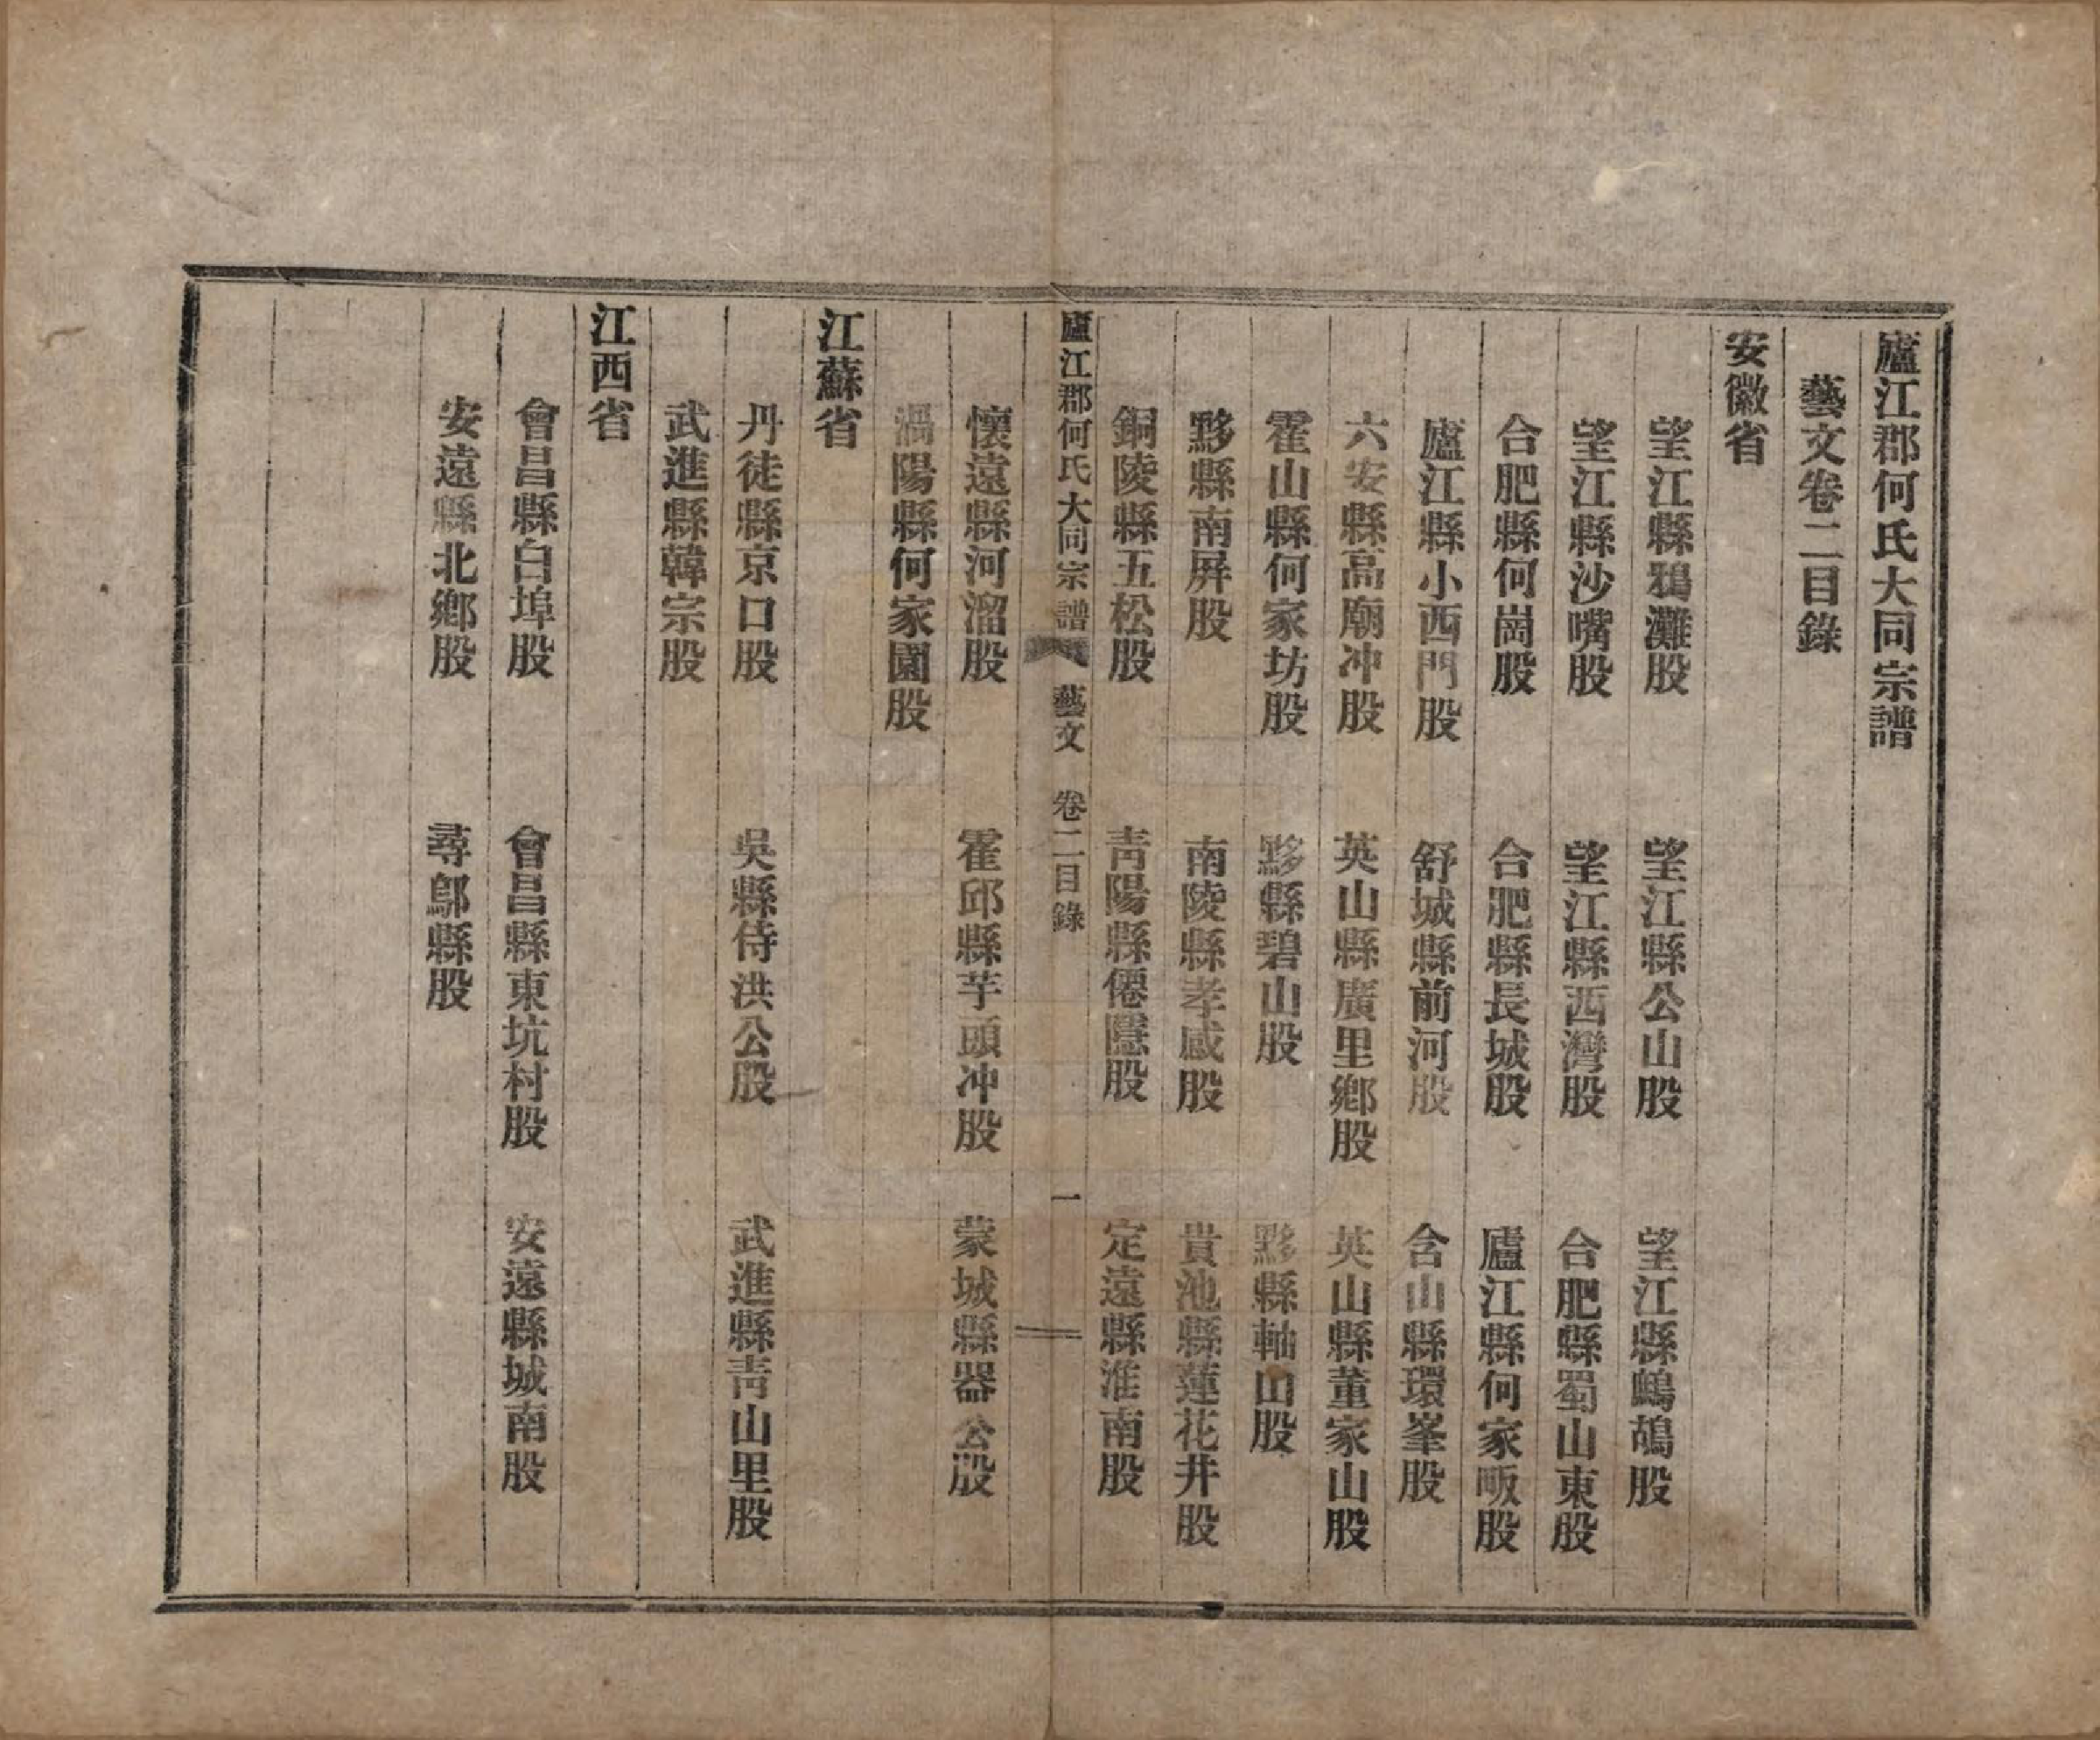 廬江郡何氏大同宗譜
藝文卷二目錄
安徽省
望江縣鴉灘股　望江縣公山股　望江縣鷓鴣股
望江縣沙嘴股　望江縣西灣股　合肥縣蜀山東股
合肥縣何崗股　合肥縣長城股　廬江縣何家畈股
廬江縣小西門股　舒城縣前河股　含山縣環峯股
六安縣高廟冲股　英山縣廣里鄉股　英山縣董家山股
霍山縣何家坊股　黟縣碧山股　黟縣軸山股
黟縣南屏股　南陵縣孝感股　貴池縣蓮花井股
銅陵縣五松股　青陽縣僊隱股　定遠縣淮南股
廬江郡何氏大同宗譜　藝文　卷二目錄　一
懷遠縣河溜股　霍邱縣芋頭冲股　蒙城縣器公股
渦陽縣何家園股
江蘇省
丹徒縣京口股　吳縣侍洪公股　武進縣青山里股
武進縣韓宗股
江西省
會昌縣白埠股　會昌縣東坑村股　安遠縣城南股
安遠縣北鄉股　尋鄔縣股